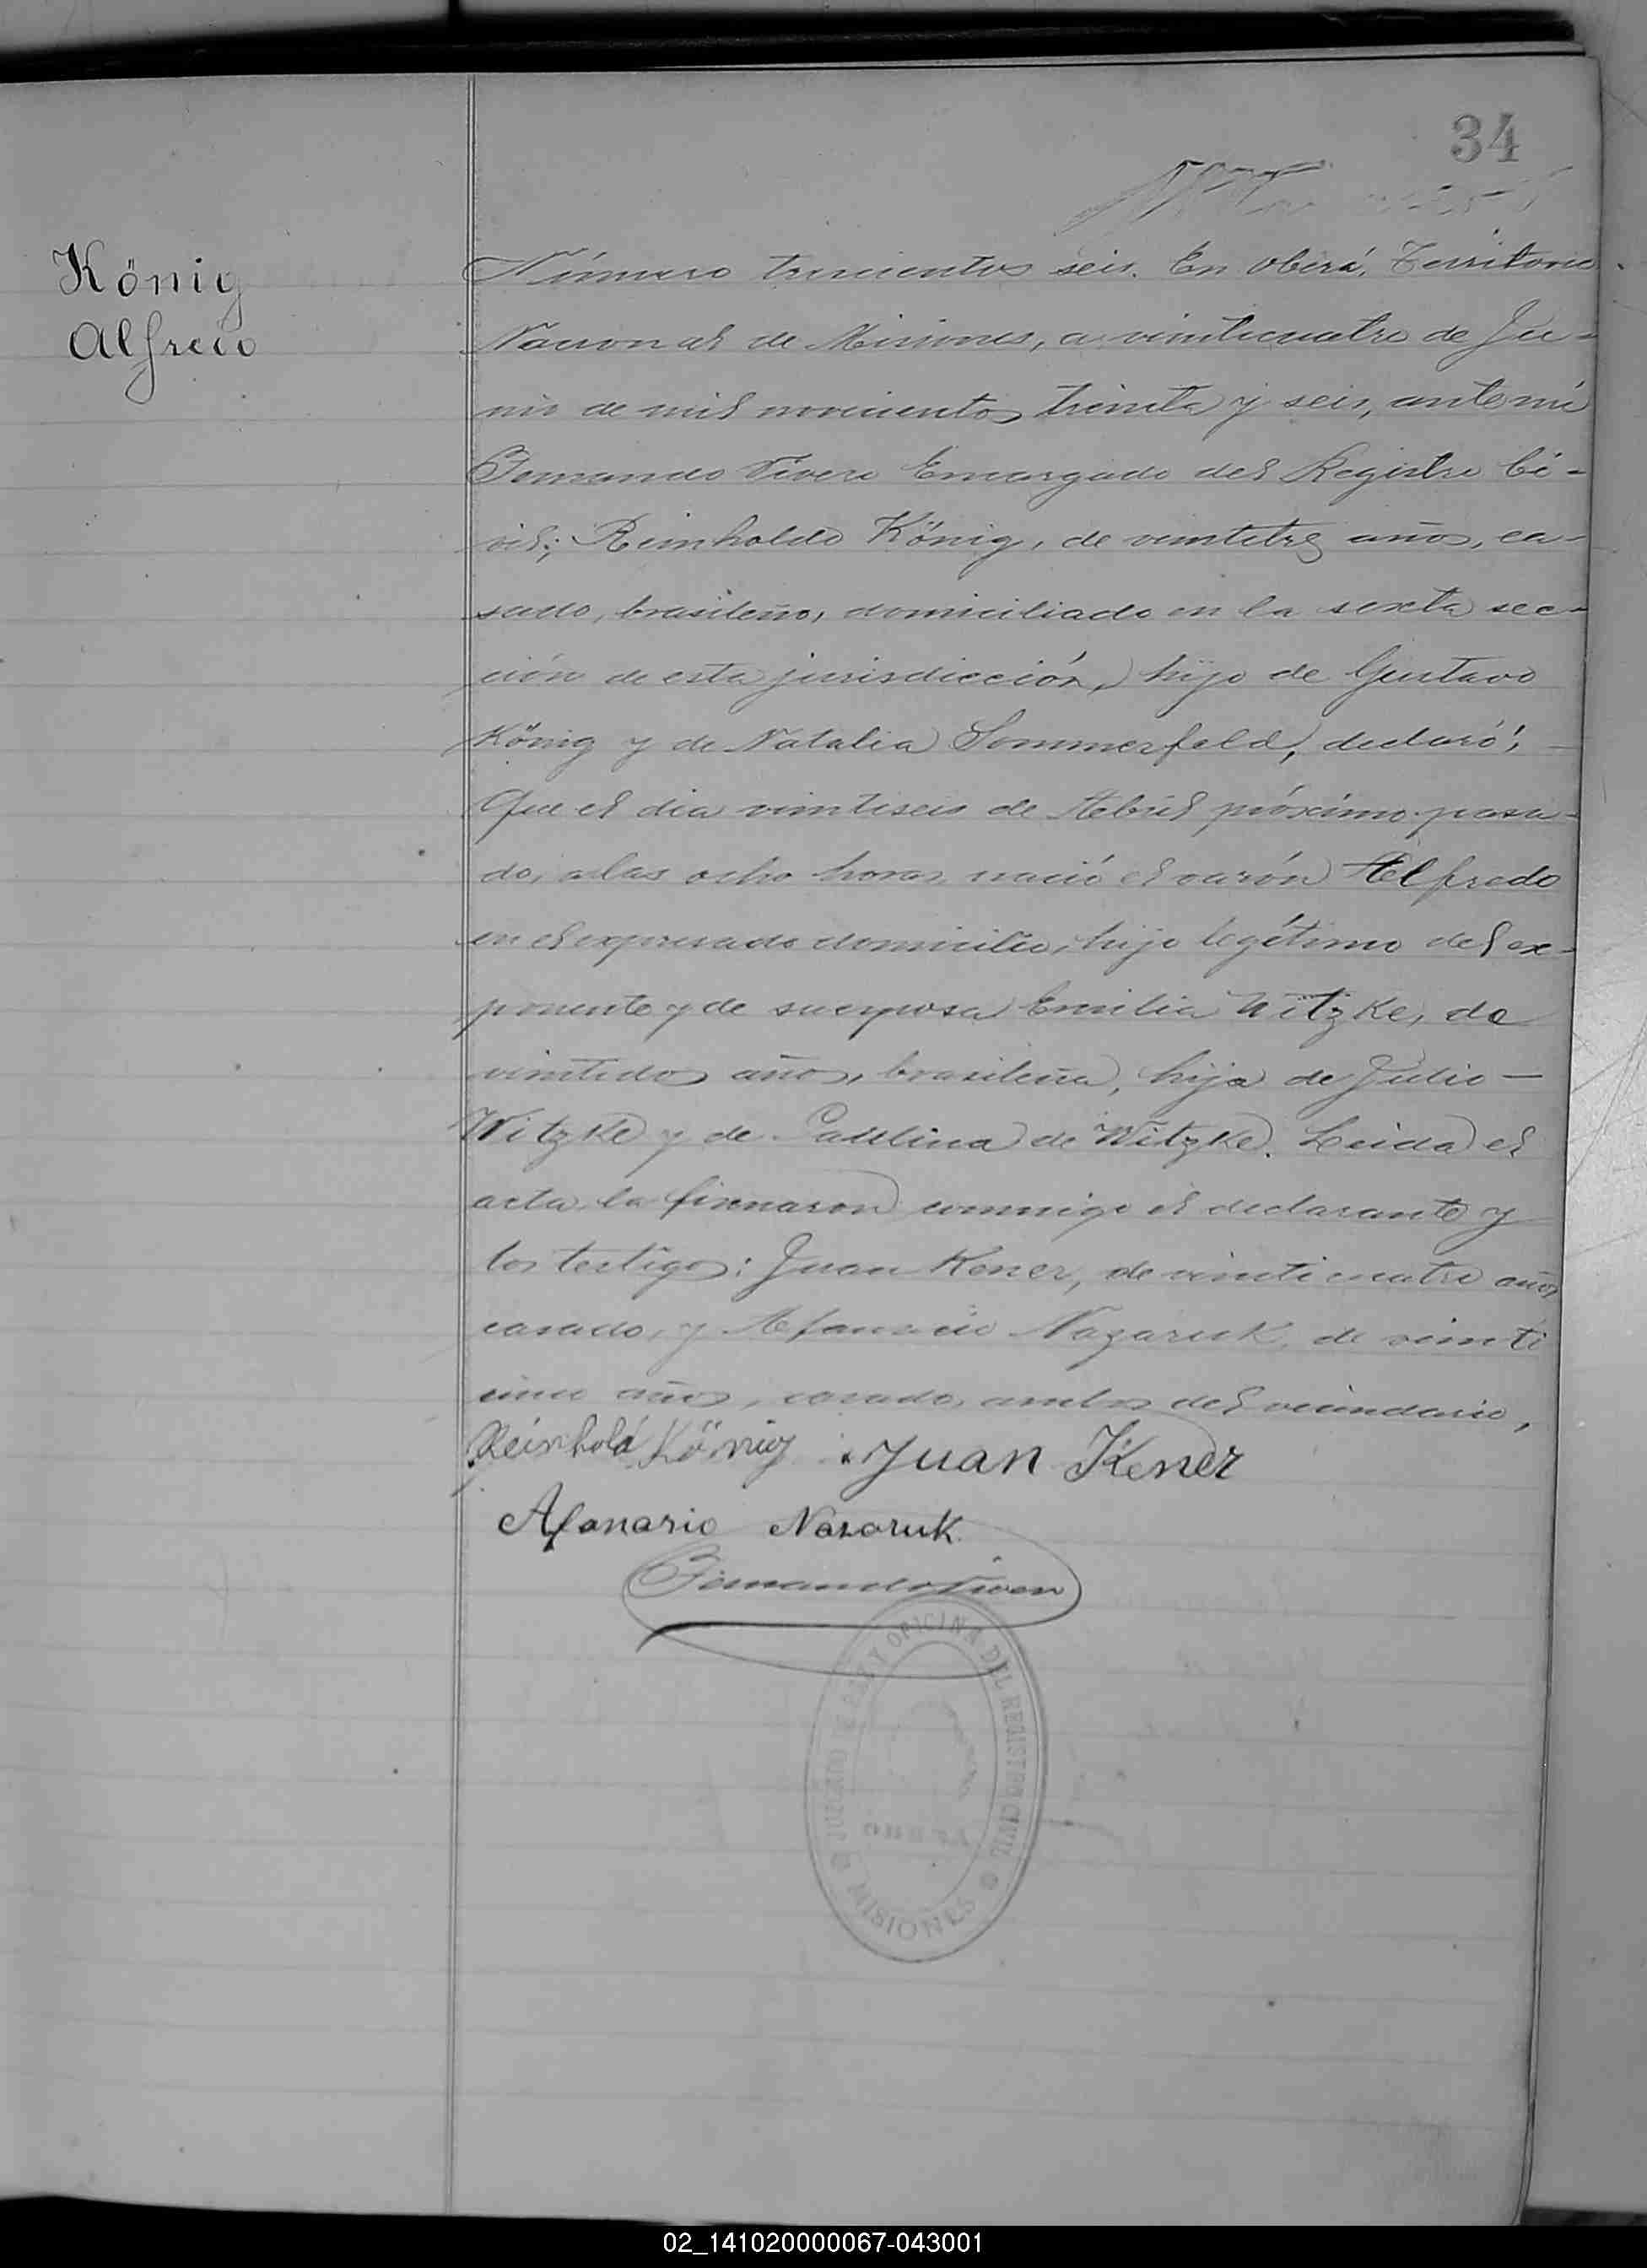 34
König
Alfredo
Número trescientos seis. En Oberá, Territorio
Nacional de Misiones, a veinticuatro de Ju-
nio de mil novecientos treinta y seis, ante mí
Fernando Vivero Encargado del Registro Ci-
vil; Reinholdo König, de veintitres años, ca-
sado, brasileño, domiciliado en la sexta sec-
ción de esta jurisdicción, hijo de Gustavo
König y de Natalia Sommerfeld, declaró:
Que el dia veintiseis de Abril próximo pasa-
do, a las ocho horas nació el varón Alfredo
en el expresado domicilio, hijo legítimo del ex-
ponente y de su esposa Emilia Witzke, de
veintidos años, brasileña, hija de Julio —
Witzke y de Paulina de Witzke. Leida el
acta la firmaron conmigo el declarante y
los testigos: Juan Kener, de veinticuatro años,
casado, y Afanacio Nazaruk, de veinti
cinco años, casado, ambos del vecindario,
Reinhold König Juan Kener
Afanario Nazaruk
OFICINA DEL REGISTRO CIVIL
MISIONES
02_141020000067-043001